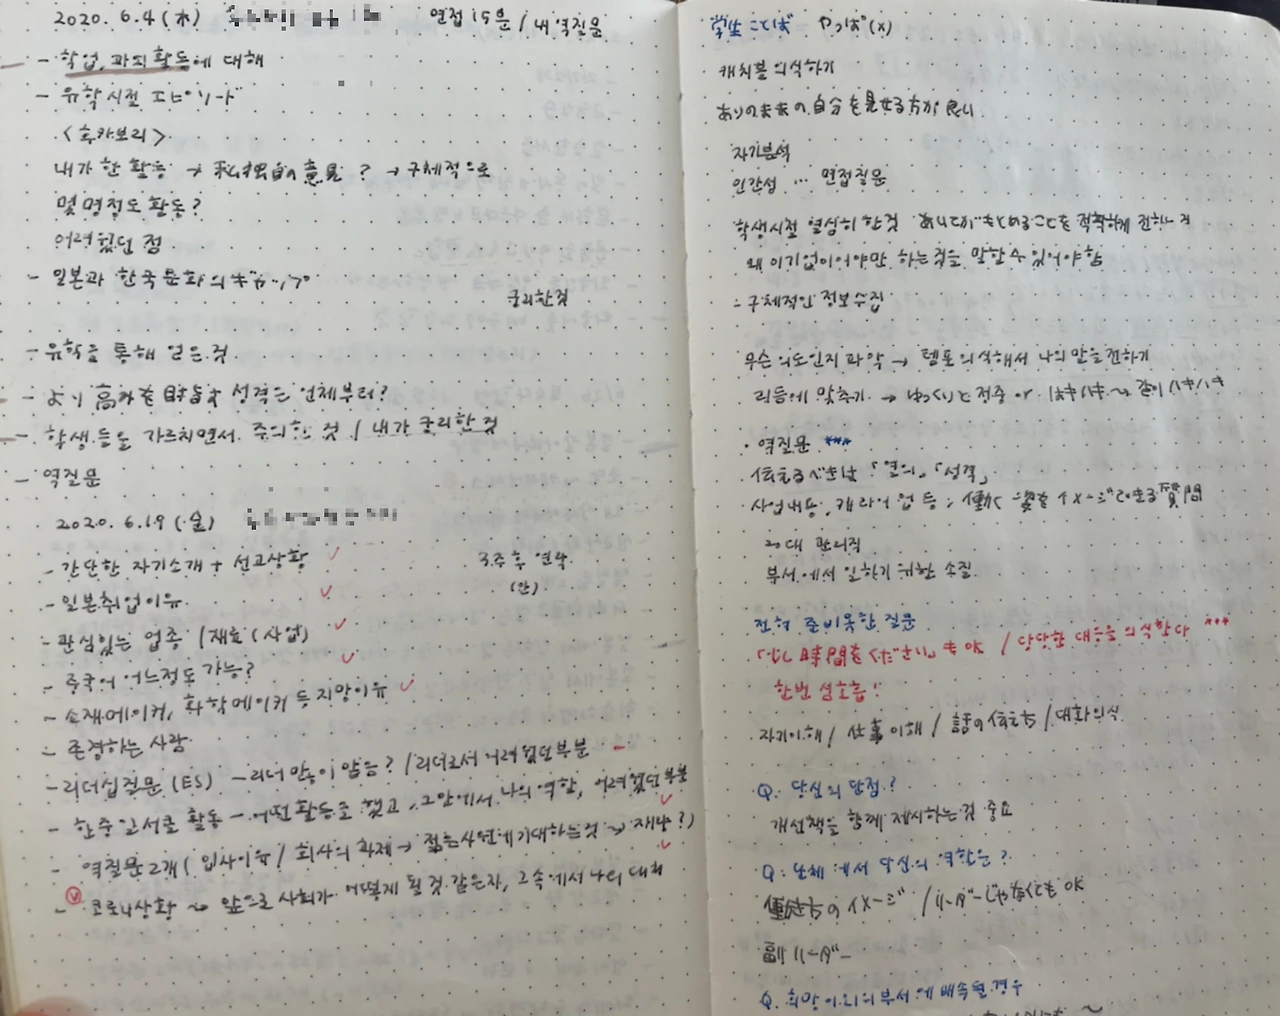 2020. 6. 4 (木) 면접 15분 / 내 역질문
- 학업, 과외활동에 대해
- 유학시절 エピソード
<추카보리>
내가 한 활동 → 私独自の意見? → 구체적으로
몇 명정도 활동?
어려웠던 점
- 일본과 한국문화의 ギャップ
궁리한것
- 유학을 통해 얻은것
- より高みを目指す 성격은 언제부터?
- 학생들을 가르치면서 주의한 것 / 내가 궁리한 것
- 역질문
2020. 6.19 (金)
- 간단한 자기소개 + 선고상황
3주후 연락
(안)
- 일본취업이유
- 관심있는 업종 / 재료 (사업)
- 중국어 어느정도 가능?
- 소재메이커, 화학메이커 등 지망이유
- 존경하는 사람
- 리더십질문 (ES) - 리더 많이 맡음? / 리더로서 어려웠던부분
- 한중일서클 활동 - 어떤활동을 했고, 그안에서 나의 역할, 어려웠던부분
- 역질문 2개 ( 입사이유 / 회사의 과제 → 젊은사원에 기대하는것 ?)
- 코로나상황 ~ 앞으로 사회가 어떻게 될 것 같은지, 그속에서 나의 대처
学生ことば やっぱ (x)
캐치볼 의식하기
ありのままの自分を見せる方が良い
자기분석
인간성 … 면접질문
학생시절 열심히 한것 あいてがもとめることを 적확하게 전하는 것
왜 이기업이어야만 하는것을 말할 수 있어야 함
∴ 구체적인 정보수집
무슨 의도인지 파악 → 템포의식해서 나의 말을 전하기
리듬에 맞추기 → ゆっくりと 정중 or はきはき~ 같이 ハキハキ
• 역질문 ***
伝えるべきは 「열의」, 「성격」
사업내용, 캐리어 업 등 : 働く姿をイメージできる質問
20대 관리직
부서에서 일하기 위한 소질
전혀 준비못한 질문
「少し時間をください」も OK / 당당한 대응을 의식한다 ***
한번 심호흡!
자기이해 / 仕事이해 / 話の伝え方 / 대화의식
Q. 당신의 단점?
개선책을 함께 제시하는것 중요
Q. 단체에서 당신의 역할은?
働き方のイメージ / リーダーじゃなくても OK
副リーダー
Q. 희망이외의 부서에 배속될 경우